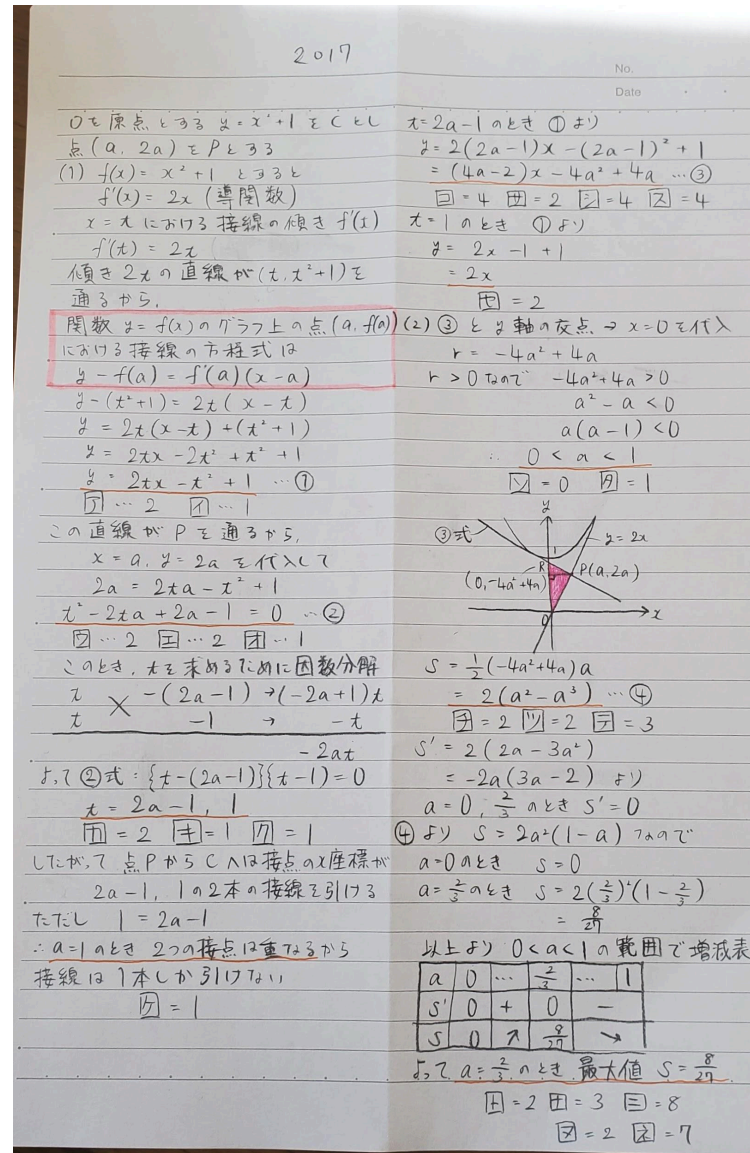 2017
No.
Date
Oを原点とする y=x²+1 をCとし
点(a, 2a)をPとする
(1) f(x)= x²+1 とすると
f'(x)= 2x (導関数)
x=tにおける接線の傾き f'(t)
f'(t) = 2t
傾き2tの直線が(t, t²+1)を
通るから,
関数 y=f(x)のグラフ上の点(a, f(a))
における接線の方程式は
y-f(a) = f'(a)(x-a)
y-(t²+1)= 2t(x-t)
y = 2t(x-t)+(t²+1)
y = 2tx-2t²+t²+1
y = 2tx-t²+1 …①
ア…2 イ…1
この直線がPを通るから,
x=a, y=2aを代入して
2a = 2ta-t²+1
t²-2ta+2a-1=0 …②
ウ…2 エ…2 オ…1
このとき, tを求めるために因数分解
t -(2a-1)→(-2a+1)t
t -1 → -t
-2at
よって②式:{t-(2a-1)}{t-1)=0
t = 2a-1, 1
カ=2 キ=1 ク=1
したがって 点PからCへは接点のx座標が
2a-1, 1の2本の接線を引ける
ただし 1=2a-1
∴a=1のとき 2つの接点は重なるから
接線は1本しか引けない
ケ=1
t=2a-1のとき①より
y=2(2a-1)x-(2a-1)²+1
=(4a-2)x-4a²+4a …③
コ=4 サ=2 シ=4 ス=4
t=1のとき①より
y= 2x-1+1
= 2x
セ=2
(2) ③とy軸の交点→x=0を代入
r = -4a²+4a
r>0なので -4a²+4a>0
a²-a<0
a(a-1)<0
∴ 0<a<1
ソ=0 タ=1
y
③式
y=2x
1
R
P(a,2a)
(0,-4a²+4a)
O
x
S= 1/2(-4a²+4a)a
= 2(a²-a³) …④
チ=2 ツ=2 テ=3
S'= 2(2a-3a²)
= -2a(3a-2) より
a=0, 2/3 のとき S'=0
④より S=2a²(1-a) なので
a=0のとき S=0
a=2/3のとき S=2(2/3)²(1-2/3)
= 8/27
以上より 0<a<1の範囲で増減表
a 0 … 2/3 … 1
S' 0 + 0 -
S 0 ↗ 8/27 ↘
よって, a=2/3のとき, 最大値 S=8/27
ト=2 ナ=3 ニ=8
ヌ=2 ネ=7